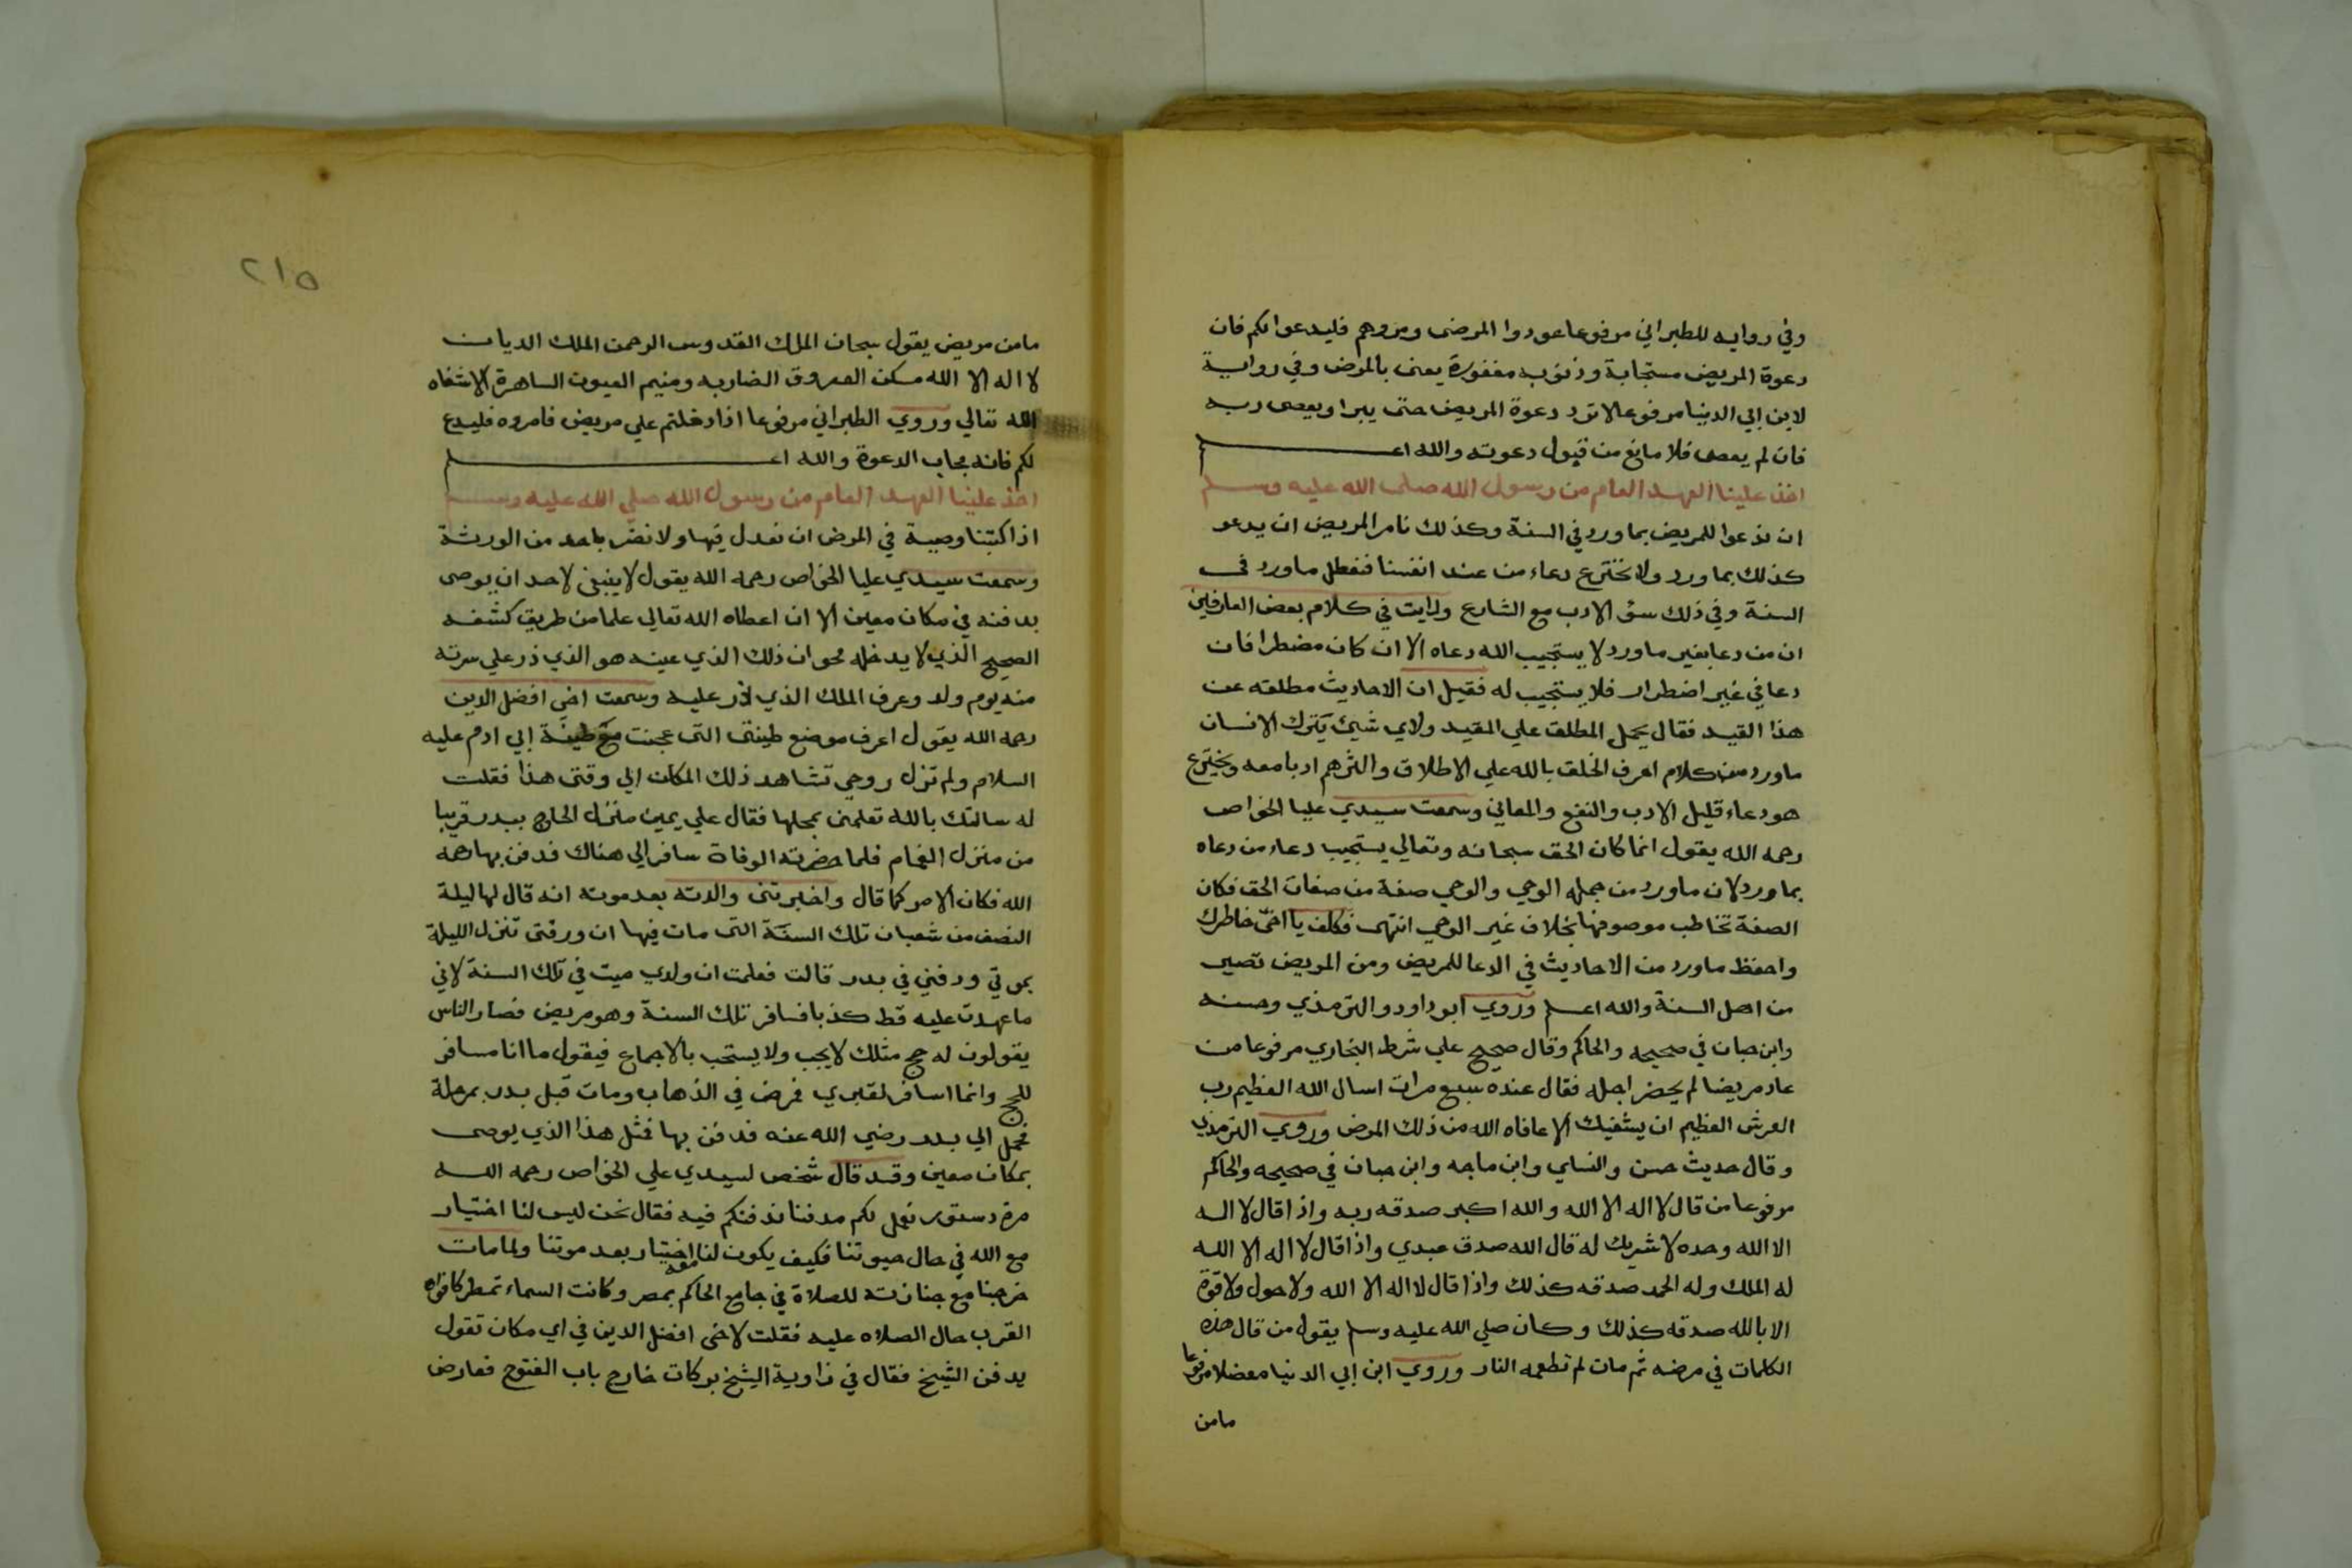 وفي روايه للطبراني مرفوعا عودوا المرضى ومروهم فليدعوا لكم فان
دعوة المريض مستجابة وذنوبه مغفورة يعنى بالمرض وفي رواية
لابن ابي الدنيا مرفوعا لا ترد دعوة المريض حتى يبرا ويعصى ربه
فان لم يعصى فلا مانع من قبول دعوته والله اعلم
اخذ علينا العهد العام من رسول الله صلى الله عليه وسلم
ان ندعوا للمريض بما ورد في السنة وكذلك نامر المريض ان يدعو
كذلك بما ورد ولا نخترع دعاء من عند انفسنا فنفعل ما ورد فى
السنة وفي ذلك سؤ الادب مع الشارع ورايت في كلام بعض العارفين
ان من دعا بغير ما ورد لا يستجيب الله دعاه الا ان كان مضطرا فان
دعا في غير اضطرار فلا يستجيب له فقيل ان الاحاديث مطلقه عن
هذا القيد فقال يحمل المطلق علي المقيد ولاي شيئ يترك الانسان
ما ورد من كلام اعرف الخلق بالله علي الاطلاق واكثرهم ادبا معه ويخترع
هو دعاء قليل الادب والنفع والمعاني وسمعت سيدي عليا الخواص
رحمه الله يقول انما كان الحق سبحانه وتعالي يستجيب دعاء من دعاه
بما ورد لان ما ورد من جمله الوحي والوحي صفة من صفات الحق فكان
الصفة تخاطب موصوفها بخلاف غير الوحي انتهى فكلف يا اخى خاطرك
واحفظ ما ورد من الاحاديث في الدعا للمريض ومن المريض تصير
من اهل السنة والله اعلم وروي ابو داود والترمذي وحسنه
وابن حبان في صحيحه والحاكم وقال صحيح علي شرط البخاري مرفوعا من
عاد مريضا لم يحضر اجله فقال عنده سبع مرات اسال الله العظيم رب
العرش العظيم ان يشفيك الا عافاه الله من ذلك المرض وروي الترمذي
وقال حديث حسن والنساي وابن ماجه وابن حبان في صحيحه والحاكم
مرفوعا من قال لا اله الا الله والله اكبر صدقه ربه واذا قال لا اله
الا الله وحده لا شريك له قال الله صدق عبدي واذا قال لا اله الا الله
له الملك وله الحمد صدقه كذلك واذا قال لا اله الا الله ولا حول ولا قوة
الا بالله صدقه كذلك وكان صلي الله عليه وسلم يقول من قال هذه
الكلمات في مرضه ثم مات لم تطعمه النار وروي ابن ابي الدنيا معضلا مرفوعا
مامن
٢١٥
مامن مريض يقول سبحان الملك القدوس الرحمن الملك الديان
لا اله الا الله مسكن العروق الضاربه ومنيم العيون الساهرة الا شفاه
الله تعالي وروي الطبراني مرفوعا اذا دخلتم علي مريض فامروه فليدع
لكم فانه مجاب الدعوة والله اعلم
اخذ علينا العهد العام من رسول الله صلي الله عليه وسلم
اذا كتبنا وصية في المرض ان نعدل فيها ولا نضر باحد من الورثة
وسمعت سيدي عليا الخواص رحمه الله يقول لا ينبغي لاحد ان يوصى
بدفنه في مكان معين الا ان اعطاه الله تعالي علما من طريق كشفه
الصحيح الذي لا يدخله محو ان ذلك الذي عينه هو الذي ذر علي سرته
منه يوم ولد وعرف الملك الذي ذر عليه وسمعت اخى افضل الدين
رحمه الله يقول اعرف موضع طينتى التى عجنت مع طينة ابي ادم عليه
السلام ولم تزل روحي تشاهد ذلك المكان الي وقتى هذا فقلت
له سالتك بالله تعلمنى بمحلها فقال علي يمين منزل الحاج ببدر قريبا
من منزل الغمام فلما حضرته الوفاة سافر الي هناك فدفن بها رحمه
الله فكان الامر كما قال واخبرتنى والدته بعد موته انه قال لها ليلة
النصف من شعبان تلك السنة التى مات فيها ان ورقتى تنزل الليلة
بموتي ودفني في بدر قالت فعلمت ان ولدي ميت في تلك السنة لاني
ما عهدت عليه قط كذبا فسافر تلك السنة وهو مريض فصار الناس
يقولون له حج مثلك لا يجب ولا يستحب بالاجماع فيقول ما انا مسافر
للحج وانما اسافر لقبري فمرض في الذهاب ومات قبل بدر بمرحلة
فحمل الي بدر رضي الله عنه فدفن بها فمثل هذا الذي يوصى
بمكان معين وقد قال شخص لسيدي علي الخواص رحمه الله
مرة دستور نعمل لكم مدفنا ندفنكم فيه فقال نحن ليس لنا اختيار
مع الله في حال حيوتنا فكيف يكون لنا اختيار معه بعد موتنا ولما مات
خرجنا مع جنازته للصلاة في جامع الحاكم بمصر وكانت السماء تمطر كافواه
القرب حال الصلاه عليه فقلت لاخى افضل الدين في اي مكان تقول
يدفن الشيخ فقال في زاوية الشيخ بركات خارج باب الفتوح فعارض